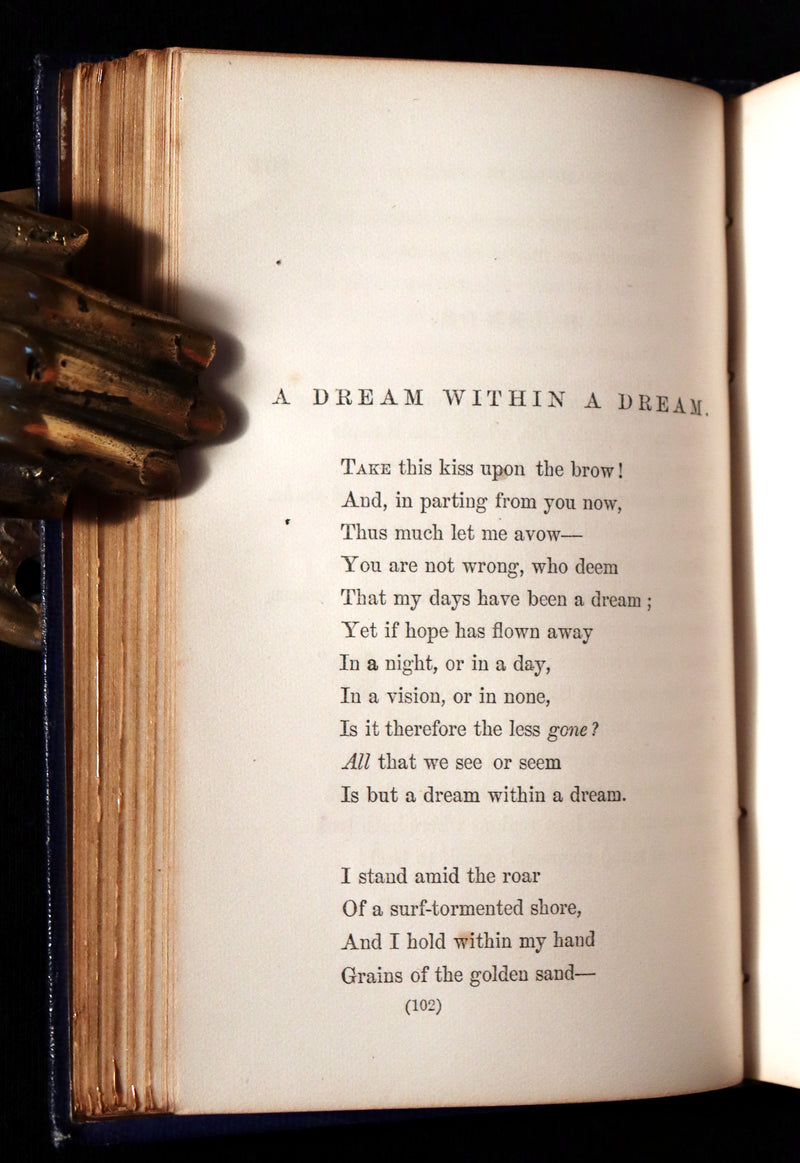 A DREAM WITHIN A DREAM.
TAKE this kiss upon the brow!
And, in parting from you now,
Thus much let me avow—
You are not wrong, who deem
That my days have been a dream;
Yet if hope has flown away
In a night, or in a day,
In a vision, or in none,
Is it therefore the less gone?
All that we see or seem
Is but a dream within a dream.
I stand amid the roar
Of a surf-tormented shore,
And I hold within my hand
Grains of the golden sand—
(102)